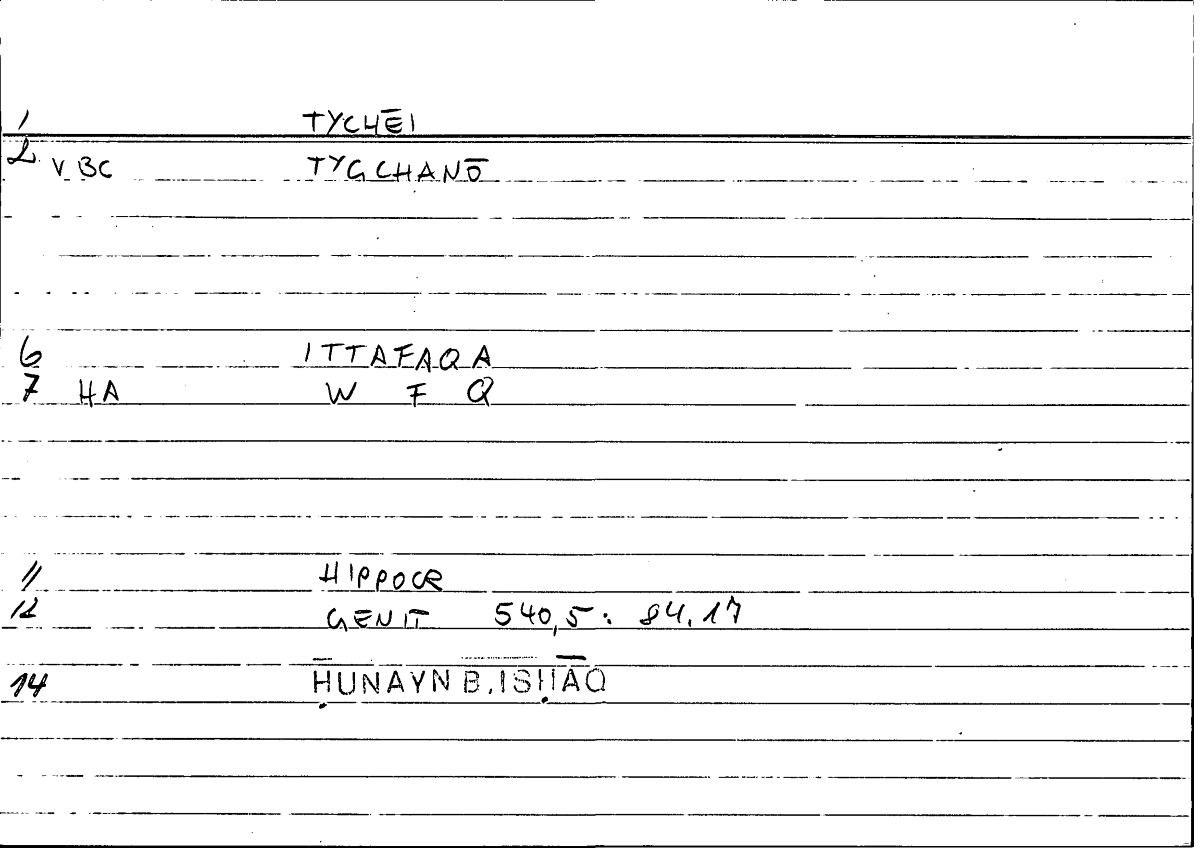 1 TYCHĒI
2 VBC TYGCHANŌ
6 ITTAFAQA
7 HA W F Q
11 HIPPOCR
12 GENIT 540,5: 84.17
14 ḤUNAYN B. ISḤĀQ